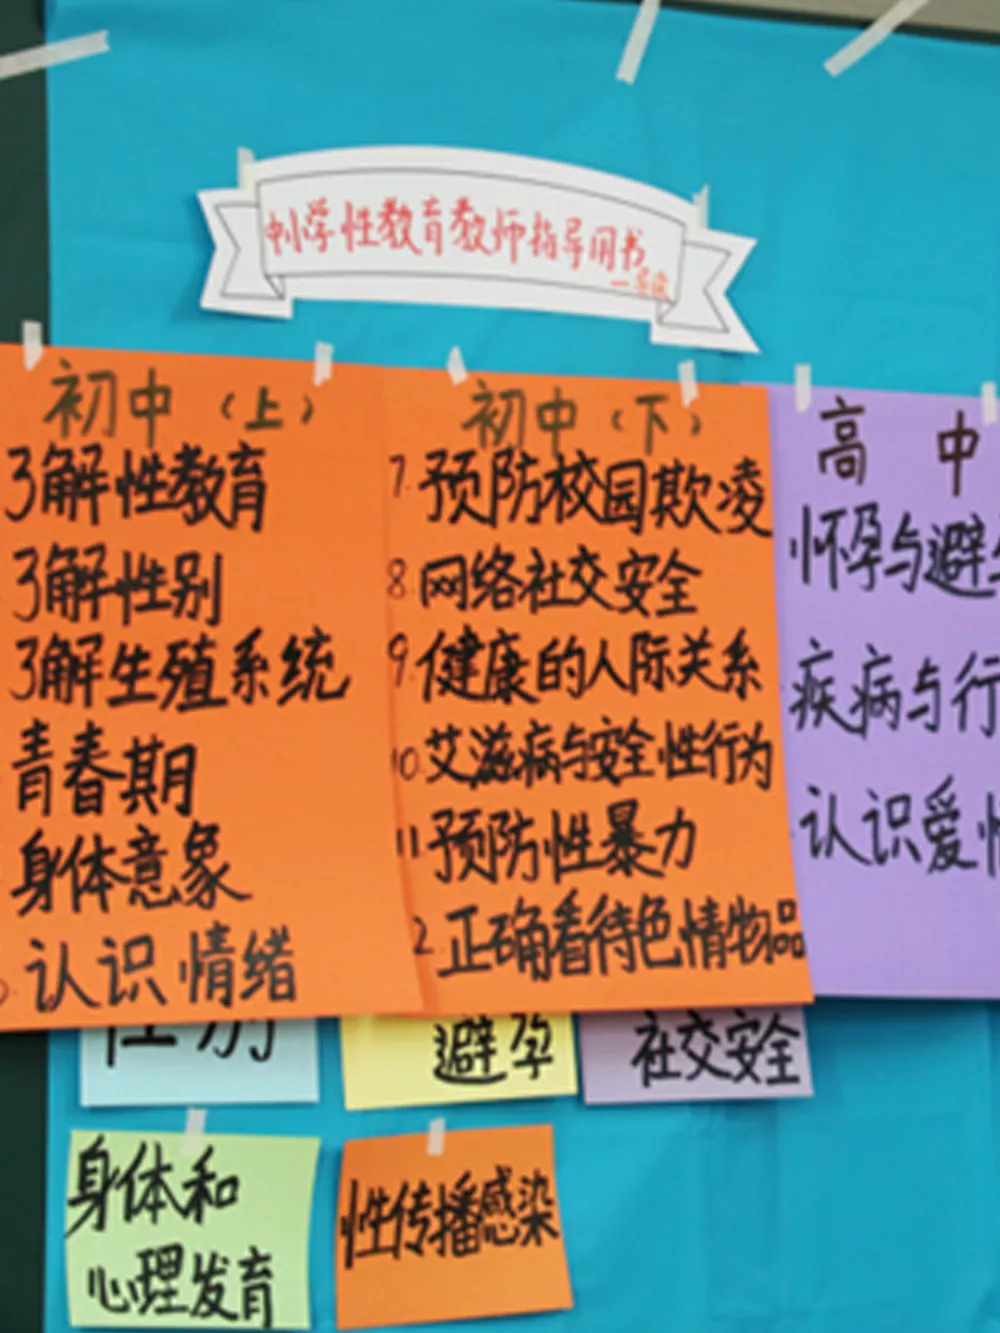 中小学性教育教师指导用书
初中（上）
了解性教育
了解性别
了解生殖系统
青春期
身体意象
认识情绪
初中（下）
7.预防校园欺凌
8.网络社交安全
9.健康的人际关系
10.艾滋病与安全性行为
11.预防性暴力
2.正确看待色情物品
高中
怀孕与避
疾病与行
认识爱情
性别
避孕
社交安全
身体和
心理发育
性传播感染